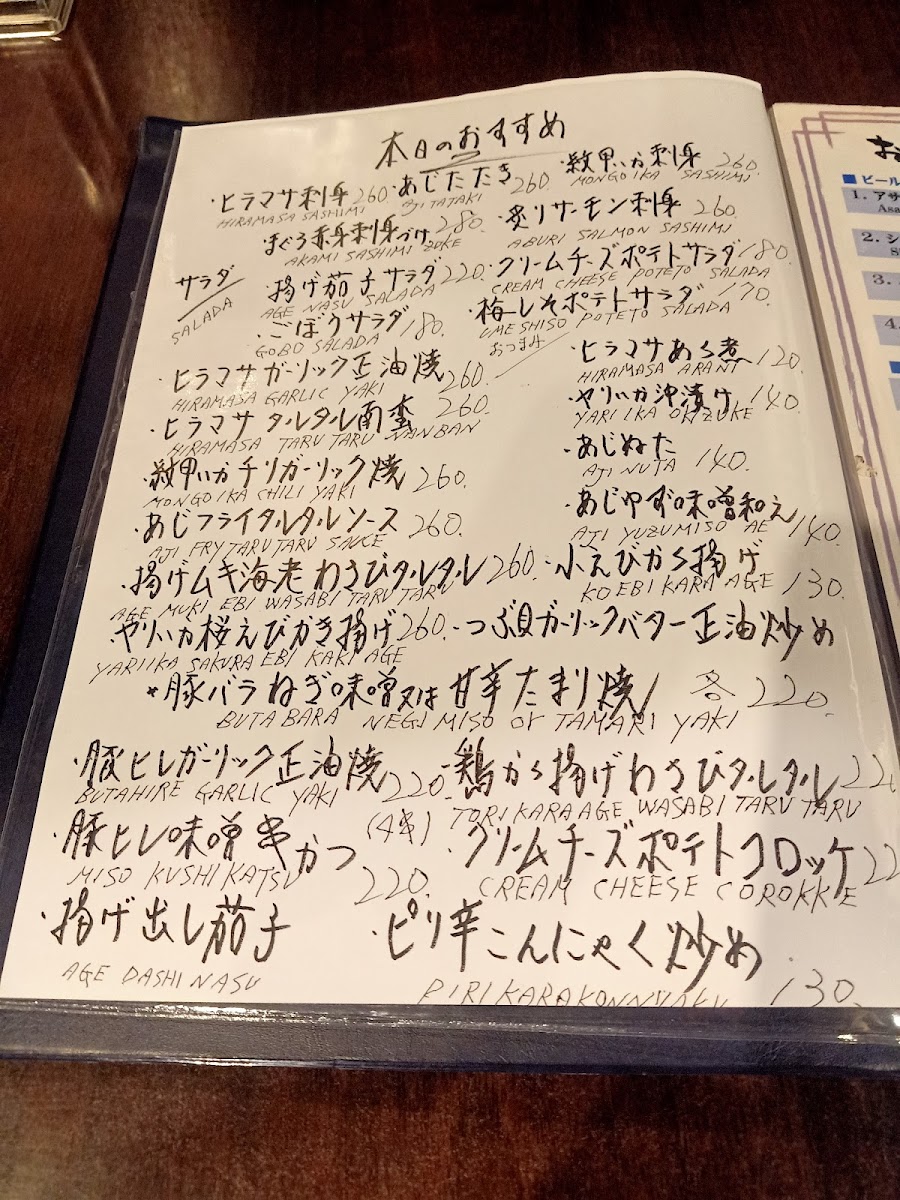 本日のおすすめ
・ヒラマサ刺身 260.
HIRAMASA SASHIMI
・あじたたき 260.
AJI TATAKI
・紋甲いか刺身 260.
MONGOIKA SASHIMI
・まぐろ赤身刺身づけ 280.
AKAMI SASHIMI ZUKE
・炙りサーモン刺身 260.
ABURI SALMON SASHIMI
サラダ
SALADA
・揚げ茄子サラダ 220.
AGE NASU SALADA
・クリームチーズポテトサラダ 180.
CREAM CHEESE POTETO SALADA
・ごぼうサラダ 180.
GOBO SALADA
・梅しそポテトサラダ 170.
UMESHISO POTETO SALADA
おつまみ
・ヒラマサガーリック正油焼 260.
HIRAMASA GARLIC YAKI
・ヒラマサあら煮 120.
HIRAMASA ARANI
・ヒラマサタルタル南蛮 260.
HIRAMASA TARU TARU NANBAN
・ヤリいか沖漬け 140.
YARI IKA OKIZUKE
・紋甲いかチリガーリック焼 260.
MONGOIKA CHILI YAKI
・あじぬた 140.
AJI NUTA
・あじフライタルタルソース 260.
AJI FRY TARU TARU SAUCE
・あじゆず味噌和え 140.
AJI YUZUMISO AE
・揚げムキ海老わさびタルタル 260.
AGE MUKI EBI WASABI TARU TARU
・小えびから揚げ 130.
KOEBI KARA AGE
・ヤリいか桜えびかき揚げ 260.
YARIIKA SAKURA EBI KAKI AGE
・つぶ貝ガーリックバター正油炒め
・豚バラねぎ味噌又は甘辛たまり焼 各220.
BUTA BARA NEGI MISO or TAMARI YAKI
・豚ヒレガーリック正油焼 220.
BUTAHIRE GARLIC YAKI
・鶏から揚げわさびタルタル 22
TORI KARA AGE WASABI TARU TARU
・豚ヒレ味噌串かつ (4串) 220.
MISO KUSHI KATSU
・クリームチーズポテトコロッケ 22
CREAM CHEESE COROKKE
・揚げ出し茄子
AGE DASHI NASU
・ピリ辛こんにゃく炒め 130.
PIRI KARA KONNYAKU
■ビール
1. アサ
Asa
2.
3.
4.